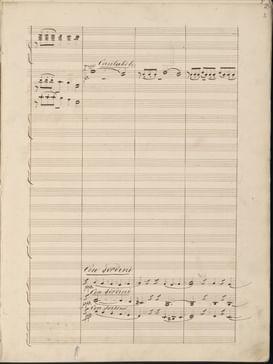 Cantabile
Con Sordini
pp
Con Sordini
pp
Con Sordini
pp